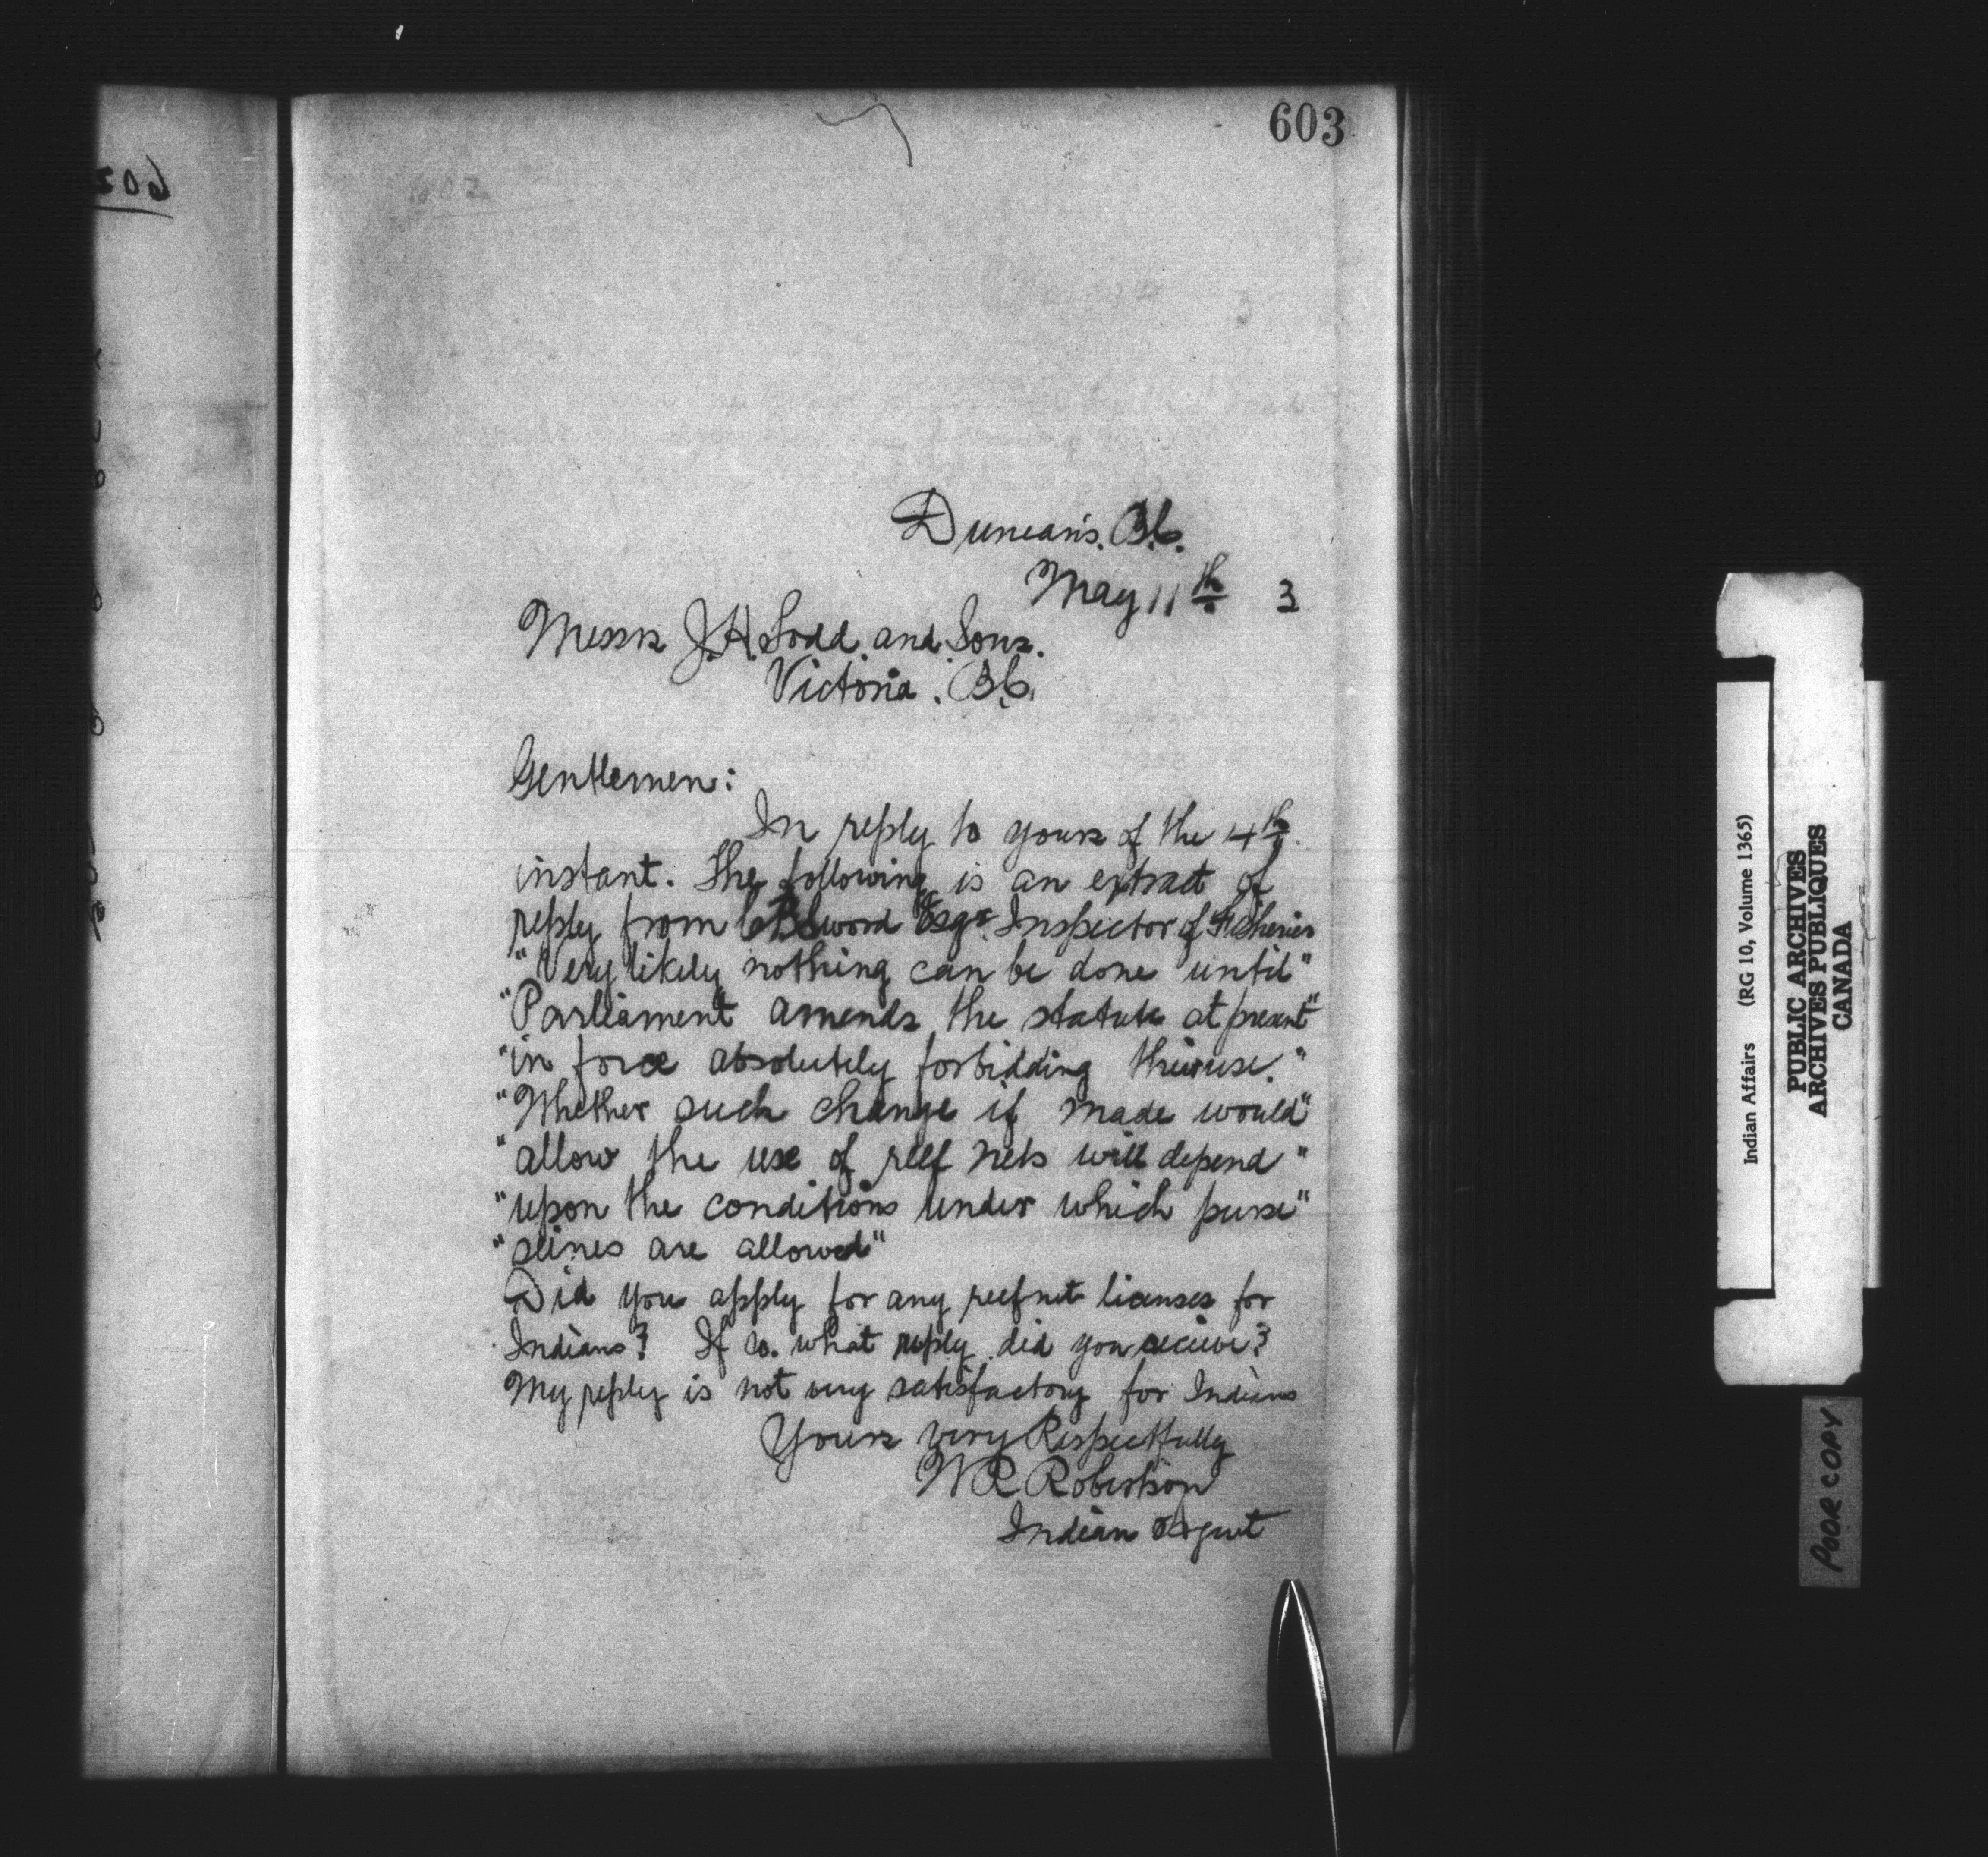 603
Duncan's. B.C.
May 11th 3
Messrs J.H. Todd and Sons.
Victoria. B.C.
Gentlemen:
In reply to yours of the 4th
instant. The following is an extract of
reply from C.B. Sword Esqr. Inspector of Fisheries
"Very likely nothing can be done until"
"Parliament amends the statute at present"
"in force absolutely forbidding their use."
"Whether such change if made would"
"allow the use of reef nets will depend"
"upon the conditions under which purse"
"seines are allowed"
Did you apply for any reefnet licenses for
Indians? If so. what reply did you receive?
My reply is not very satisfactory for Indians
Yours very Respectfully
W R Robertson
Indian Agent
Indian Affairs (RG 10, Volume 1365)
PUBLIC ARCHIVES
ARCHIVES PUBLIQUES
CANADA
POOR COPY